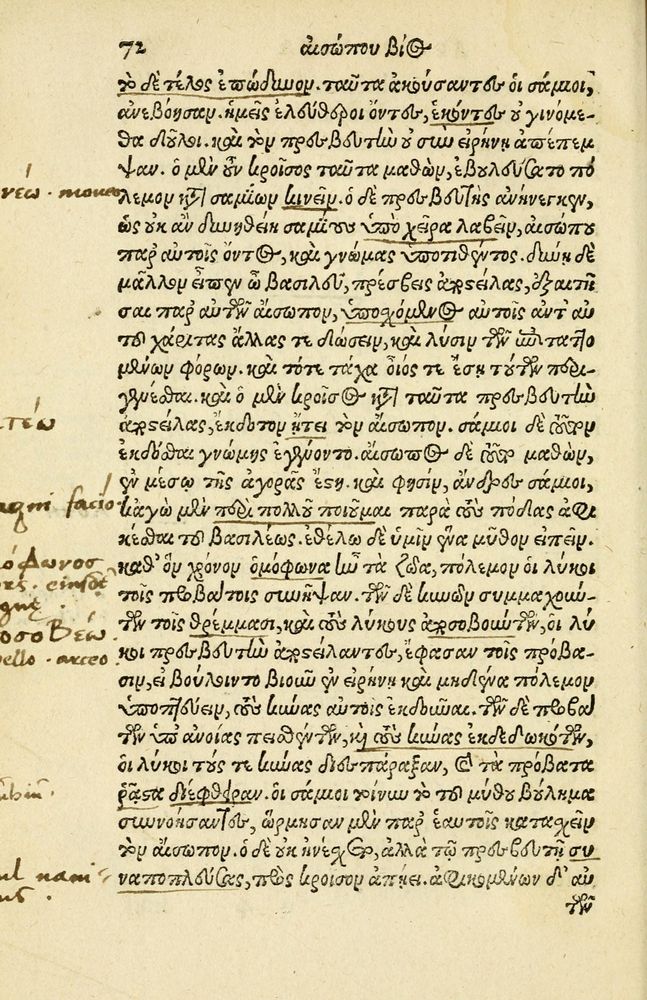 72 αἰσώπου βίος
τὸ δὲ τέλος ἐπώδυνον. ταῦτα ἀκούσαντες οἱ σάμιοι,
ἀνεβόησαν. ἡμεῖς ἐλεύθεροι ὄντες, ἑκόντες οὐ γινόμε-
θα δοῦλοι. καὶ τὸν πρεσβευτὴν οὐ σὺν εἰρήνῃ ἀπέπεμ
ψαν. ὁ μὲν οὖν κροῖσος ταῦτα μαθὼν, ἐβουλεύσατο πό
νέω · moveo
λεμον κατὰ σαμίων κινεῖν. ὁ δὲ πρεσβευτὴς ἀνήνεγκεν,
ὡς οὐκ ἂν δυνηθείη σαμίους ὑπὸ χεῖρα λαβεῖν, αἰσώπου
παρ αὐτοῖς ὄντος, καὶ γνώμας ὑποτιθέντος. δύνῃ δὲ
μᾶλλον εἶπεν ὦ βασιλεῦ, πρέσβεις ἀποστείλας, ἐξαιτῆ
σαι παρ αὐτῶν αἴσωπον, ὑποσχόμενος αὐτοῖς ἀντ αὐ
τοῦ χάριτας ἄλλας τε δώσειν, καὶ λύσιν τῶν ἐπιταττο
μένων φόρων. καὶ τότε τάχα οἷός τε ἔσῃ τούτων περι-
γενέσθαι. καὶ ὁ μὲν κροῖσος κατὰ ταῦτα πρεσβευτὴν
ατέω
ἀποστείλας, ἔκδοτον ᾔτει τὸν αἴσωπον. σάμιοι δὲ τοῦτον
ἐκδόσθαι γνώμης ἐγένοντο. αἴσωπος δὲ τοῦτο μαθὼν,
ἐν μέσῳ τῆς ἀγορᾶς ἔστη. καὶ φησὶν, ἄνδρες σάμιοι,
magni facio
κἀγὼ μὲν περὶ πολλοῦ ποιοῦμαι παρὰ τοὺς πόδας ἀφι
κέσθαι τοῦ βασιλέως. ἐθέλω δὲ ὑμῖν ἕνα μῦθον εἰπεῖν.
όφωνος
καθ' ὃν χρόνον ὁμόφωνα ἦν τὰ ζῶα, πόλεμον οἱ λύκοι
τοῖς προβάτοις συνῆψαν. τῶν δὲ κυνῶν συμμαχούν-
των τοῖς θρέμμασι, καὶ τοὺς λύκους ἀποσοβούντων, οἱ λύ
οσοβέω.
pello · arceo.
κοι πρεσβευτὴν ἀποστείλαντες, ἔφασαν τοῖς πρόβα-
σιν, εἰ βούλοιντο βιοῦν ἐν εἰρήνῃ καὶ μηδένα πόλεμον
ὑποπτεύειν, τοὺς κύνας αὐτοῖς ἐκδοῦναι. τῶν δὲ προβά
των ὑπ ἀνοίας πεισθέντων, καὶ τοὺς κύνας ἐκδεδωκότων,
οἱ λύκοι τούς τε κύνας διεσπάραξαν, καὶ τὰ πρόβατα
ῥᾷστα διέφθειραν. οἱ σάμιοι τοίνυν τὸ τοῦ μύθου βούλημα
συννοήσαντες, ὥρμησαν μὲν παρ ἑαυτοῖς κατασχεῖν
τὸν αἴσωπον. ὁ δὲ οὐκ ἠνέσχετο, ἀλλὰ τῷ πρεσβευτῇ συ
ναποπλεύσας, πρὸς κροῖσον ἀπῄει. ἀφικομένων δ' αὐ
τῶν